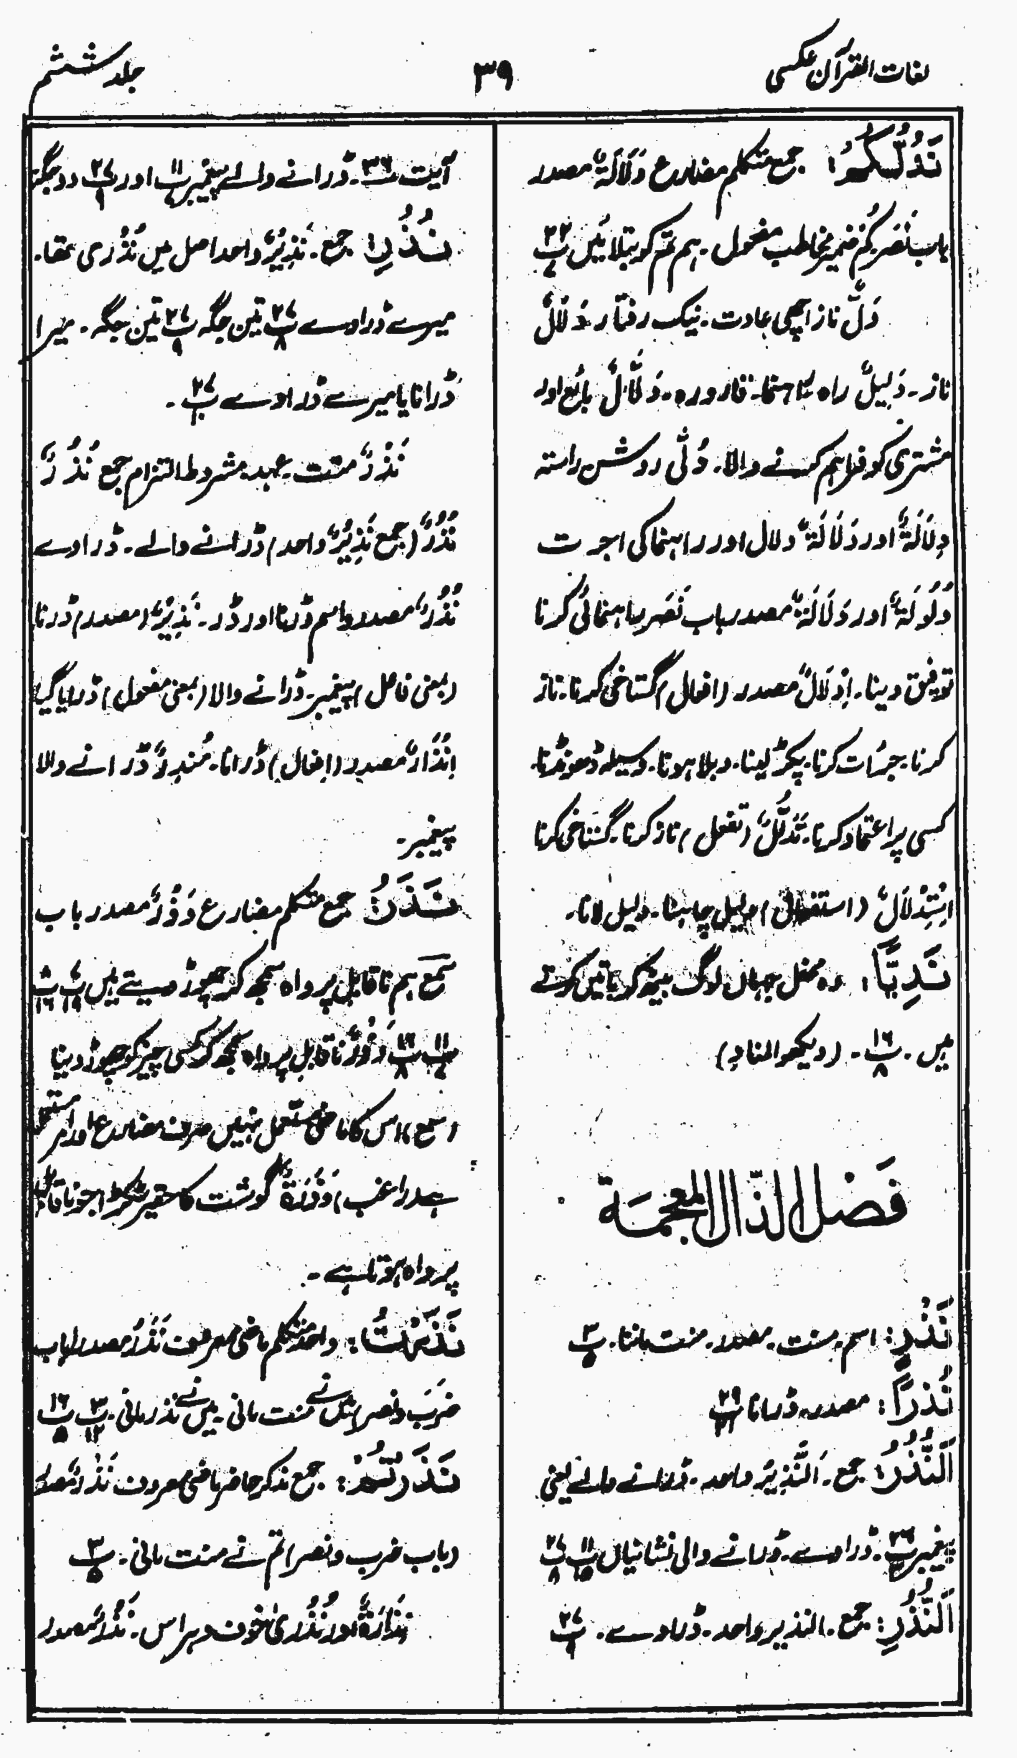 لغات القرآن عکسی
۳۹
جلد ششم
نَدُلُّكُمْ: جمع متکلم مضارع دَلَالَۃٌ مصدر
باب نَصَرَ کُمْ ضمیر مخاطب مفعول۔ ہم تم کو بتلائیں پ ۲۲
دَلٌّ ناز اچھی عادت۔ نیک رفتار دَلَالٌ
ناز۔ دَلِیلٌ راہ راہنما۔ قارورہ۔ دَلَّالٌ بائع اور
مشتری کو فراہم کرنے والا۔ دُلّٰی روشن راستہ
دِلَالَۃٌ اور دَلَالَۃٌ دلال اور راہنما کی اجرت
دُلُولَۃٌ اور دَلَالَۃٌ مصدر باب نَصَرَ راہنمائی کرنا
توفیق دینا۔ اِدْلَالٌ مصدر (افعال) گستاخی کرنا۔ ناز
کرنا۔ جرأت کرنا۔ پکڑ لینا۔ دبلا ہونا۔ وسیلہ ڈھونڈنا
کسی پر اعتماد کرنا۔ تَدَلُّلٌ (تفعل) ناز کرنا۔ گستاخی کرنا
اِسْتِدْلَالٌ (استفعال) دلیل چاہنا۔ دلیل لانا۔
نَدِیًّا: وہ محفل جہاں لوگ بیٹھ کر باتیں کرتے
ہیں۔ پ ۱۶ ۸۔ (دیکھو المناد)
فَصْل الذّال المعجمَۃ
نَذْرٍ: اسم۔ منت۔ مصدر۔ منت ماننا۔ پ ۳ ۵
نُذْرًا: مصدر۔ ڈرانا پ ۲۹ ۲۱
اَلنُّذُرُ: جمع۔ اَلنَّذِیرُ واحد۔ ڈرانے والے یعنی
پیغمبر پ۔ ڈراوے۔ ڈرانے والی نشانیاں پ ۱۱ ۱۵ پ ۲۷ ۸
اَلنُّذُرِ: جمع۔ النذیر واحد۔ ڈراوے۔ پ ۲۷ ۹
آیت ۳۶۔ ڈرانے والے پیغمبر پ ۱۱ اور پ ۲۷ ۹ دو جگہ
نُذُرِ: جمع۔ نَذِیْرٌ واحد اصل میں نُذُرِی تھا۔
میرے ڈراوے پ ۲۷ ۸ تین جگہ پ ۲۷ ۹ تین جگہ۔ میرا
ڈرانا یا میرے ڈراوے پ ۲۷ ۱۰۔
نَذْرٌ منت۔ عہد۔ مشروط التزام جمع نُذُرٌ
نُذُرٌ (جمع نَذِیْرٌ واحد) ڈرانے والے۔ ڈراوے
نُذُرٌ مصدر و اسم ڈرنا اور ڈر۔ نَذِیْرٌ (مصدر) ڈرنا
(بمعنی فاعل) پیغمبر۔ ڈرانے والا (بمعنی مفعول) ڈرایا گیا
اِنْذَارٌ مصدر (افعال) ڈرانا۔ مُنْذِرٌ ڈرانے والا
پیغمبر۔
نَذَرُ: جمع متکلم مضارع وَذْرٌ مصدر باب
سَمِعَ ہم ناقابل پرواہ سمجھ کر چھوڑ دیتے ہیں پ پ
پ ۱۱ پ ۱۶ ۸ وَذْرٌ ناقابل پرواہ سمجھ کر کسی چیز کو چھوڑ دینا
(سمع) اس کا ماضی مستعمل نہیں صرف مضارع اور امر مستعمل
ہے (راغب) وَذْرَۃٌ گوشت کا حقیر ٹکڑا جو ناقابل
پرواہ ہوتا ہے۔
نَذَرْتُ: واحد متکلم ماضی معروف نَذْرٌ مصدر (باب
ضَرَبَ و نصر) میں نے منت مانی۔ میں نے نذر مانی۔ پ ۳ ۱۲ پ ۱۶ ۵
نَذَرْتُمْ: جمع مذکر حاضر ماضی معروف نَذْرٌ مصدر
(باب ضرب و نصر) تم نے منت مانی۔ پ ۳ ۵
نَذَارَۃٌ اور نُذْرٰی خوف و ہراس۔ نُذْرٌ مصدر